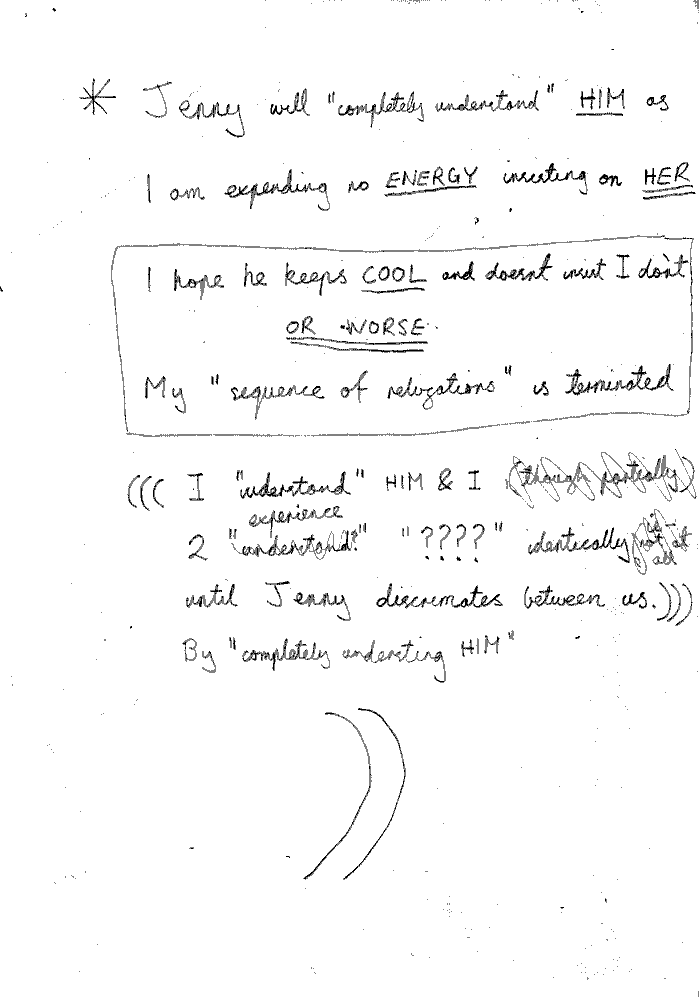 * Jenny will "completely understand" HIM as
I am expending no ENERGY insisting on HER
I hope he keeps COOL and doesnt insist I don't
OR WORSE
My "sequence of relugations" is terminated
((( I "understand" HIM & I (though partially)
experience
2 "understand?" "????" identically not at all
until Jenny discrimates between us.)))
By "completely understing HIM"